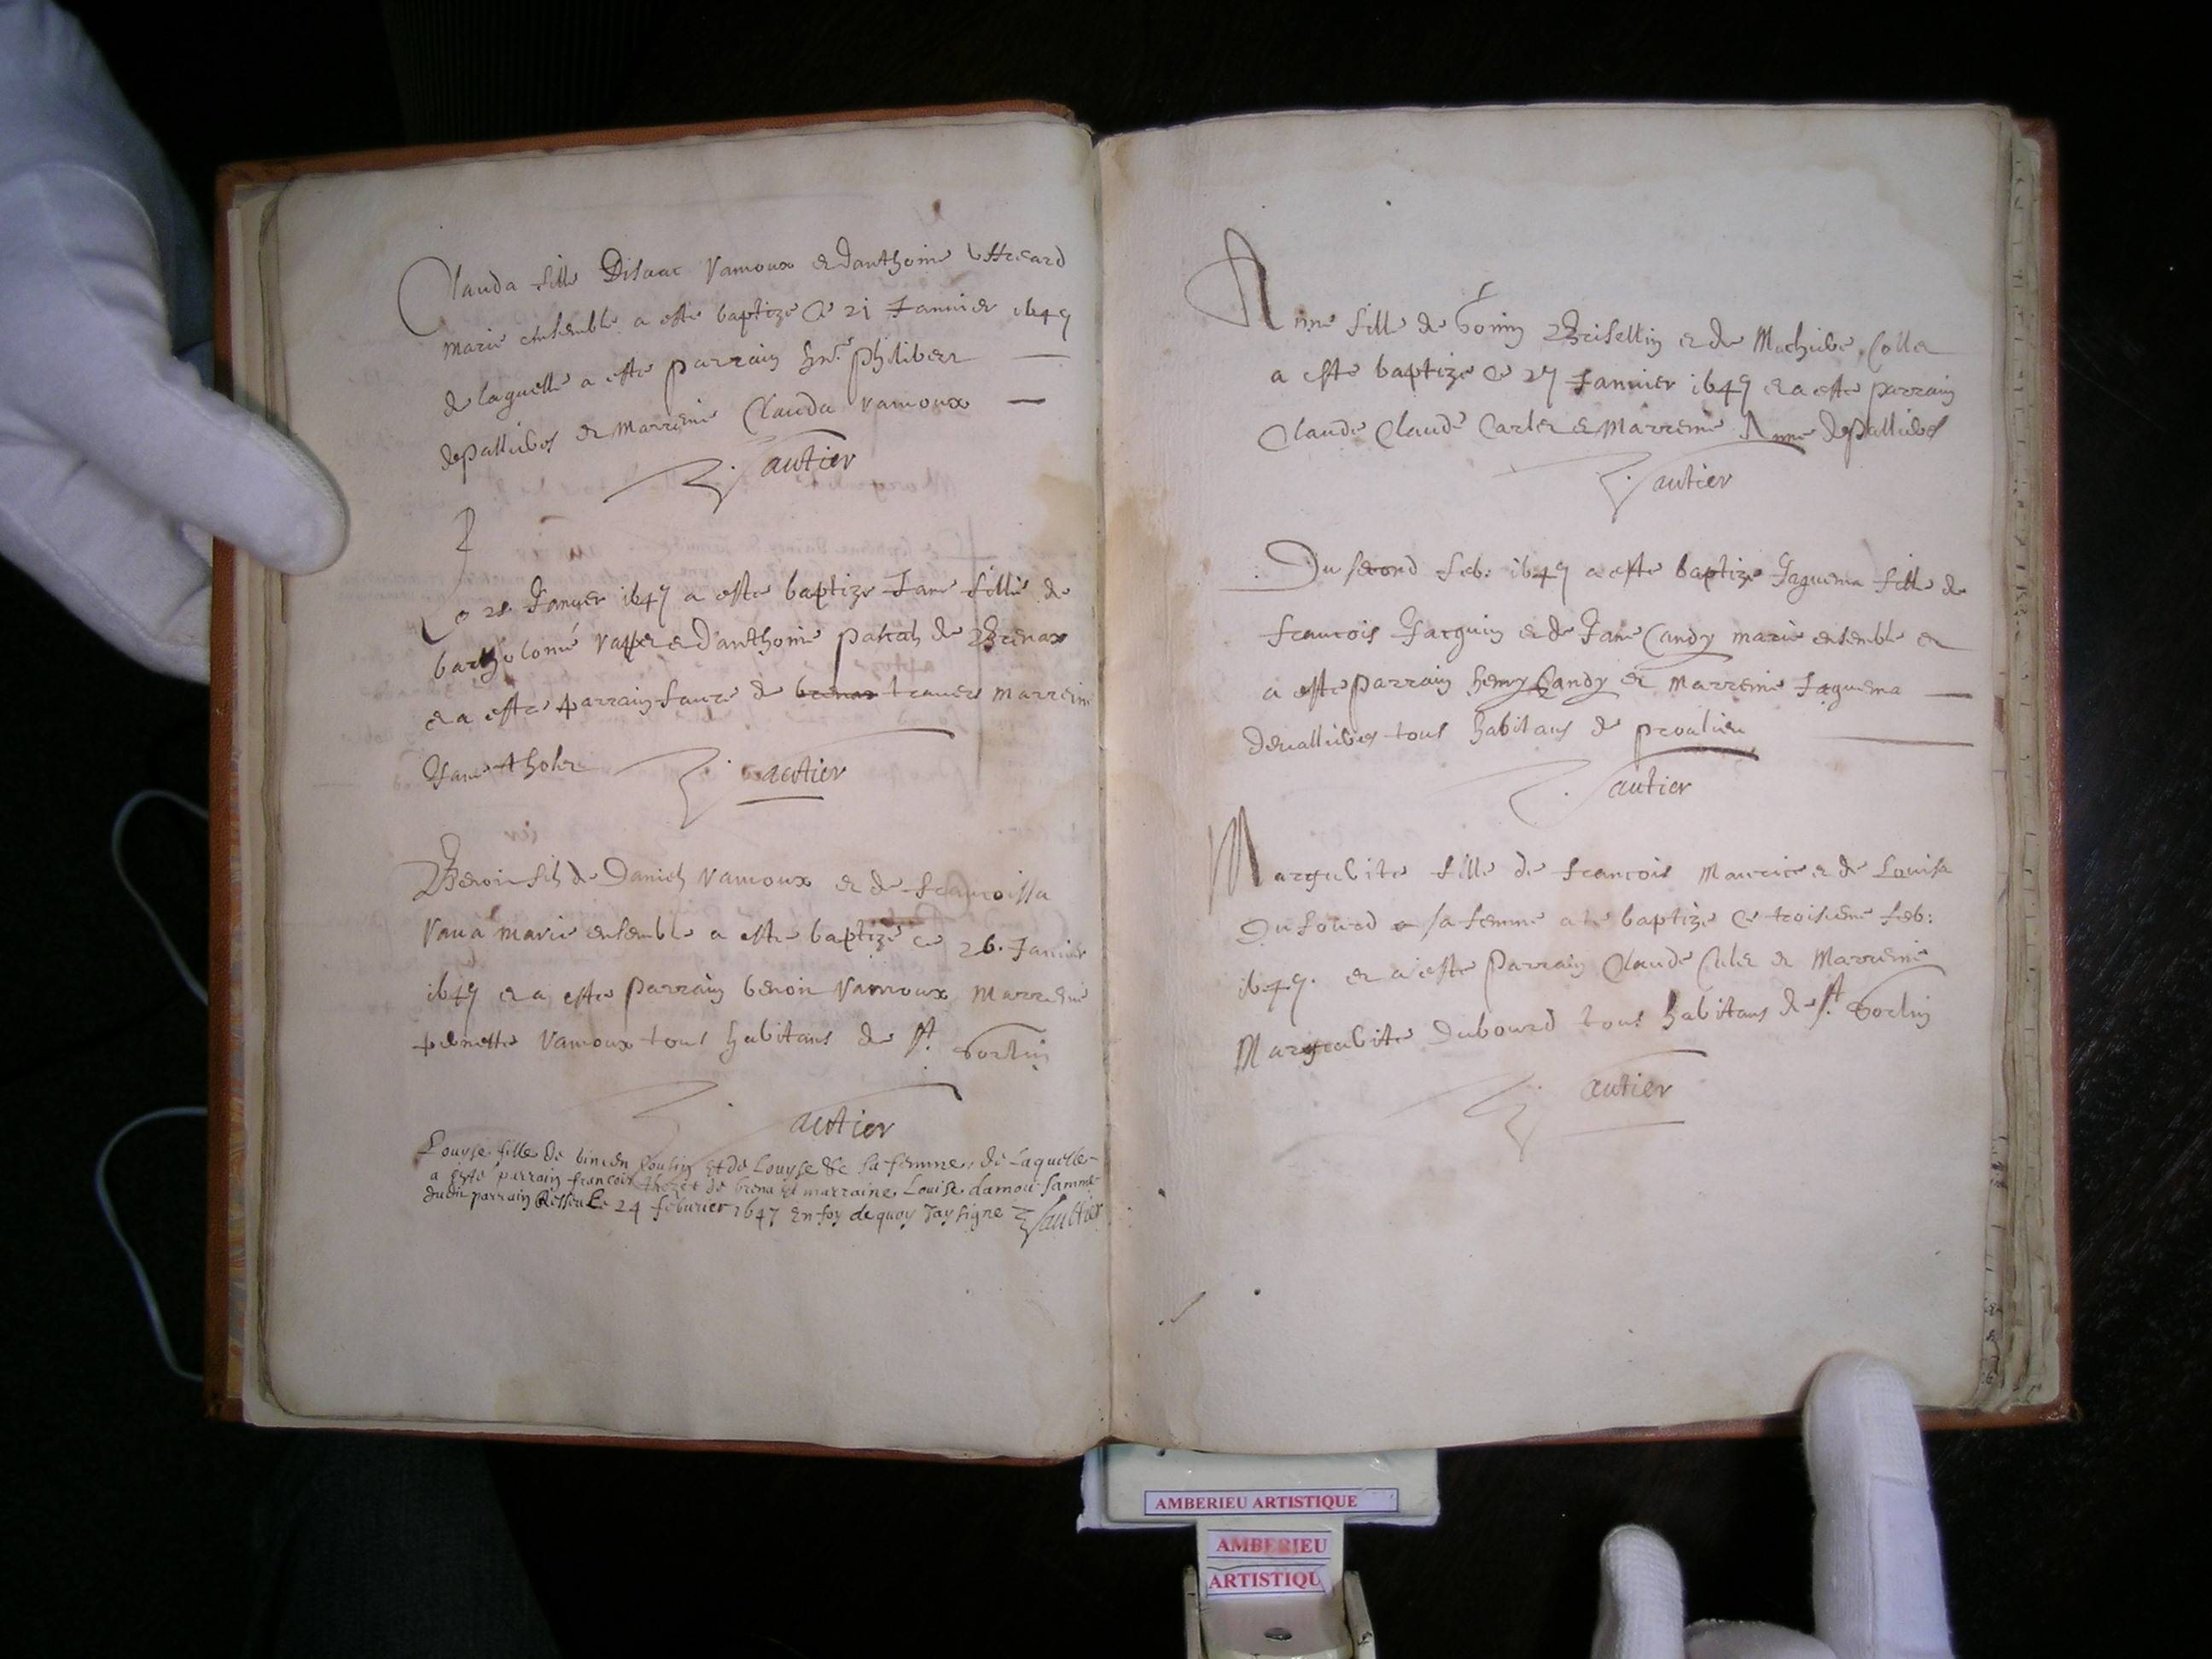 Clauda fille Disaac Vamoux et danthoine
marie ensemble a este baptize ce 21 Januier 1647
de laquelle a este parrain hnr. philibert
depallieres et marreine Clauda vamoux
Gautier
Ce 28 Januier 1647 a este baptize Jane fille de
bartholomé et danthoine pascal de Brenax
et a este parrain faure de brenax trauers marreine
Jane tholer Gautier
Benoit fils de Daniel Vamoux et de francoissa
Vana marie ensemble a este baptize ce 26. Januier
1647 et a este parrain benoit Vamoux marreine
pernette Vamoux tous habitans de st. Sorlin
Gautier
Louyse fille de vincen et de Louyse sa femme, de Laquelle
a este parrain francois de brena et marraine Louise damou famme
dudit parrain Le 24 feburier 1647 En foy de quoy Jay signe Gaultier
Anne fille de Brisellin et de
a este baptize ce 27 Januier 1647 et a este parrain
Claude Claude Carler et Marreine Anne depallieres
Gautier
Du second feb: 1647 a este baptize Jaquema fille de
francois Jacquin et de Jane Candy marie ensemble et
a este parrain henry Candy et marreine Jaquema
deuallieres tous habitans de proulieu
Gautier
Marguerite fille de francois Maurice et de Louisa
Dufourd sa femme a te baptize ce troisieme feb:
1647. et a este Parrain Claude et Marreine
Marguerite Dubourd tous habitans de st. Sorlin
Gautier
AMBERIEU ARTISTIQUE
AMBERIEU
ARTISTIQU